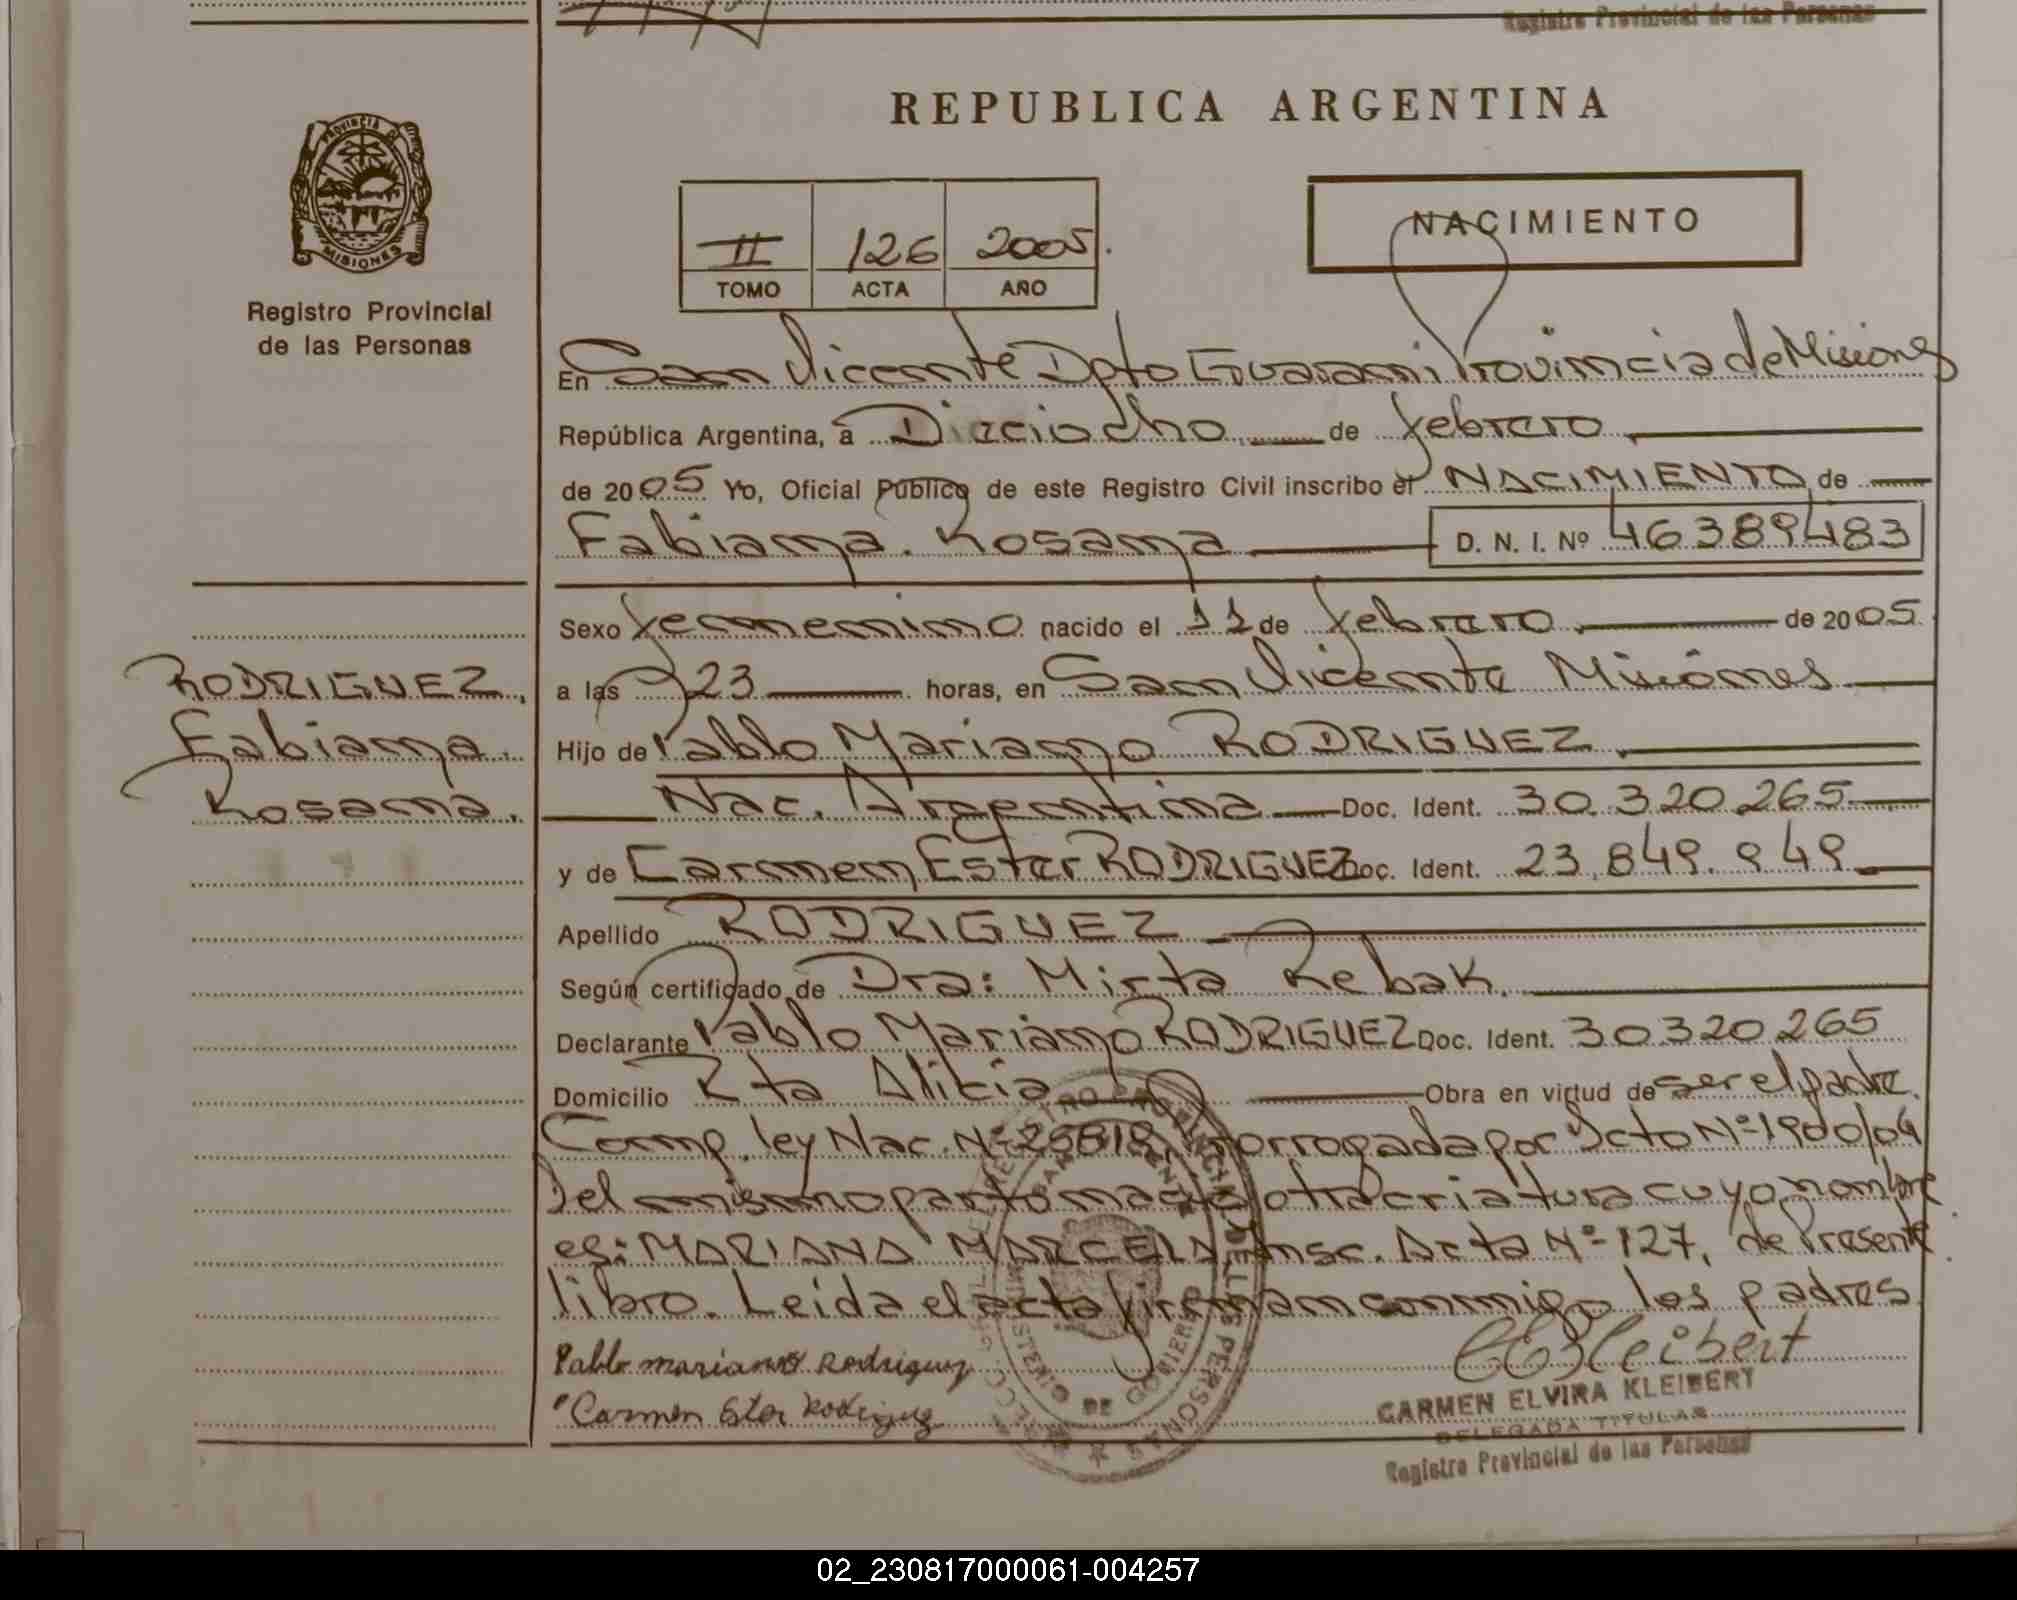 Registro Provincial de las Personas
REPUBLICA ARGENTINA
PROVINCIA DE
MISIONES
Registro Provincial
de las Personas
II 126 2005.
TOMO ACTA AÑO
NACIMIENTO
En San Vicente Dpto Guarani Provincia de Misiones
República Argentina, a Dieciocho de febrero
de 2005 Yo, Oficial Público de este Registro Civil inscribo el NACIMIENTO de
Fabiana. Rosana D. N. I. Nº 46389483
Sexo femenino nacido el 11 de febrero de 2005
RODRIGUEZ,
Fabiana.
Rosana.
a las 23 horas, en San Vicente Misiones
Hijo de Pablo Mariano RODRIGUEZ
Nac. Argentina Doc. Ident. 30.320.265
y de Carmen Ester RODRIGUEZ Doc. Ident. 23.849.949
Apellido RODRIGUEZ
Según certificado de Dra: Mirta Rebak.
Declarante Pablo Mariano RODRIGUEZ Doc. Ident. 30320265
Domicilio Rta Alicia Obra en virtud de ser el padre.
Comp. ley Nac. Nº 25819, Prorrogada por Dcto Nº 1900/04
Del mismo parto nacio otra criatura cuyo nombre
es: MARIANA MARCELA, insc. Acta Nº 127, de Presente
libro. Leida el acta firman conmigo los padres
Pablo mariano Rodriguez
Carmen Ester Rodriguez
CEKleibert
CARMEN ELVIRA KLEIBERT
DELEGADA TITULAR
Registro Provincial de las Personas
02_230817000061-004257